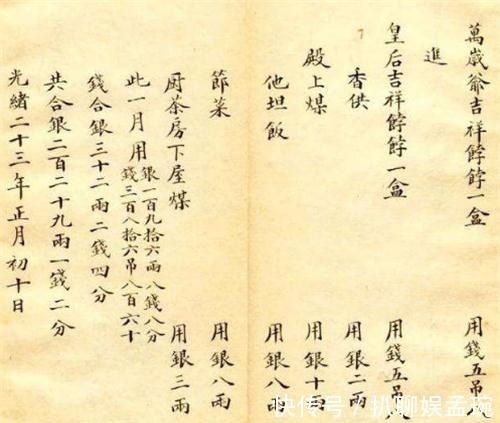 萬歲爺吉祥餑餑一盒 用錢五吊
進
皇后吉祥餑餑一盒 用錢五吊
香供 用銀二兩
殿上煤 用銀十兩
他坦飯 用銀八兩
節菜 用銀八兩
廚茶房下屋煤 用銀三兩
此一月用銀一百九拾六兩八錢八分
錢三百八拾六吊八百六十
錢合銀三十二兩二錢四分
共合銀二百二十九兩一錢二分
光緒二十三年正月初十日
快传号/扒聊娱孟琬